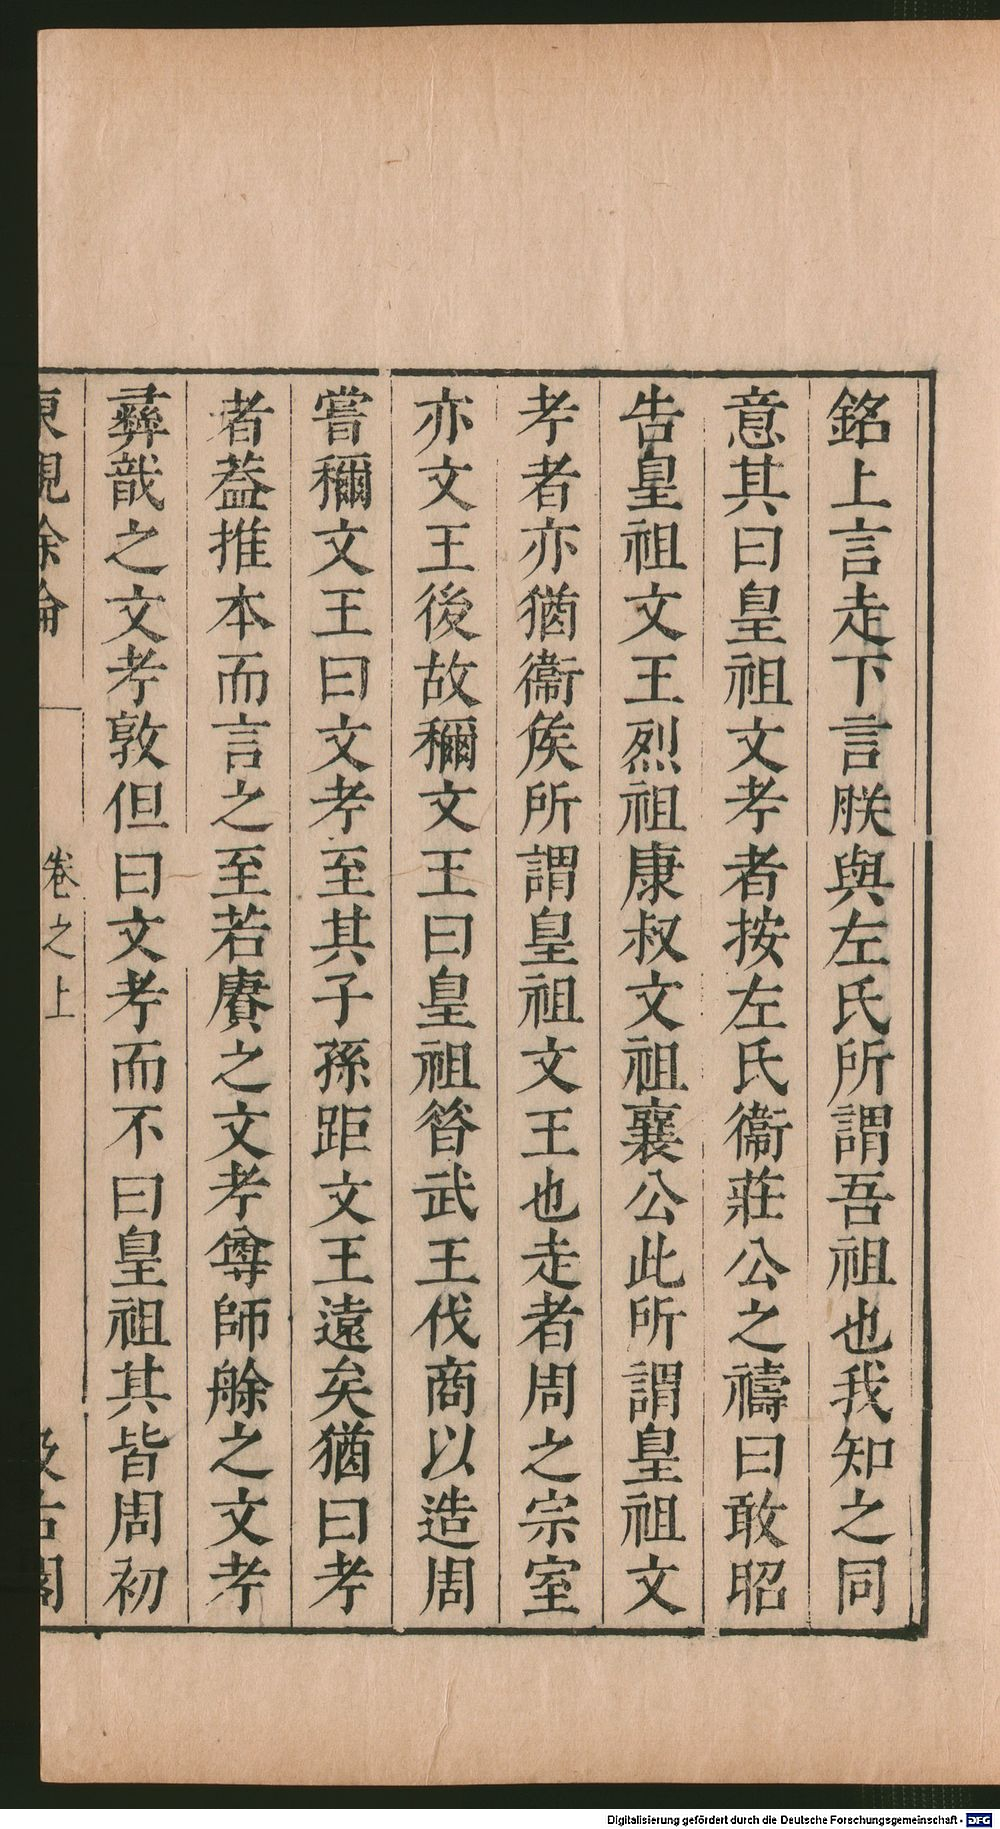 銘上言走下言朕與左氏所謂吾祖也我知之同
意其曰皇祖文考者按左氏衞莊公之禱曰敢昭
告皇祖文王烈祖康叔文祖襄公此所謂皇祖文
考者亦猶衞矦所謂皇祖文王也走者周之宗室
亦文王後故稱文王曰皇祖昝武王伐商以造周
嘗稱文王曰文考至其子孫距文王遠矣猶曰考
者葢推本而言之至若賡之文考尊師艅之文考
彝戠之文考敦但曰文考而不曰皇祖其皆周初
東觀餘論
卷之上
汲古閣
Digitalisierung gefördert durch die Deutsche Forschungsgemeinschaft - DFG